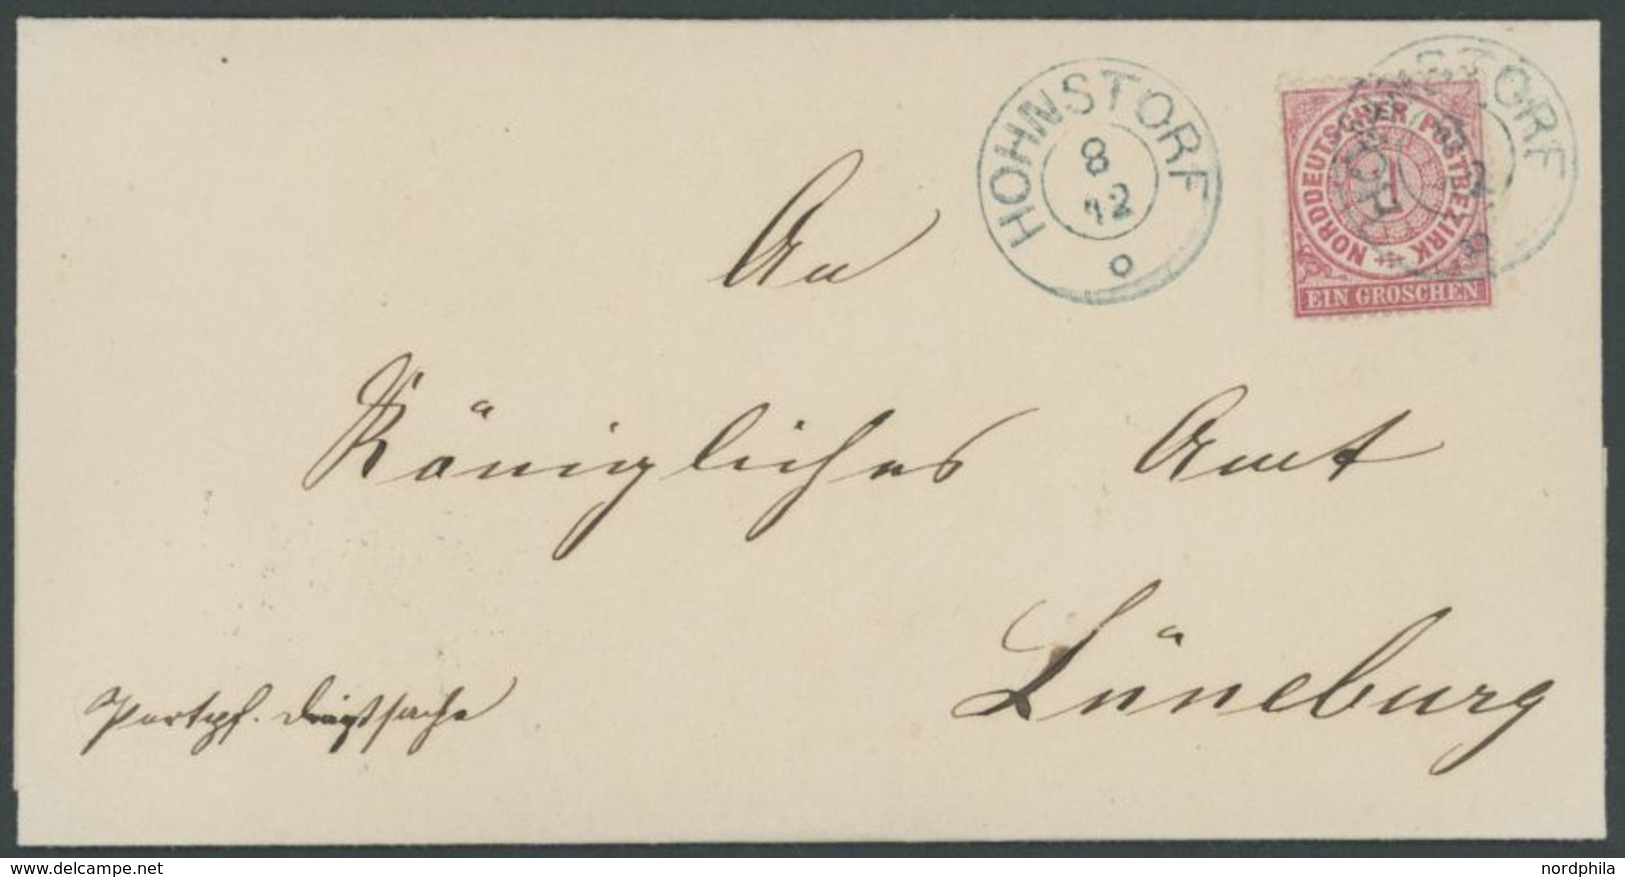 HOHNSTORF
8
12
HOHNSTORF
8
12
NORDDEUTSCHER POSTBEZIRK
1
EIN GROSCHEN
An
Königliches Amt
Lüneburg
Portopf. Dienstsache
www.delcampe.net
nordphila